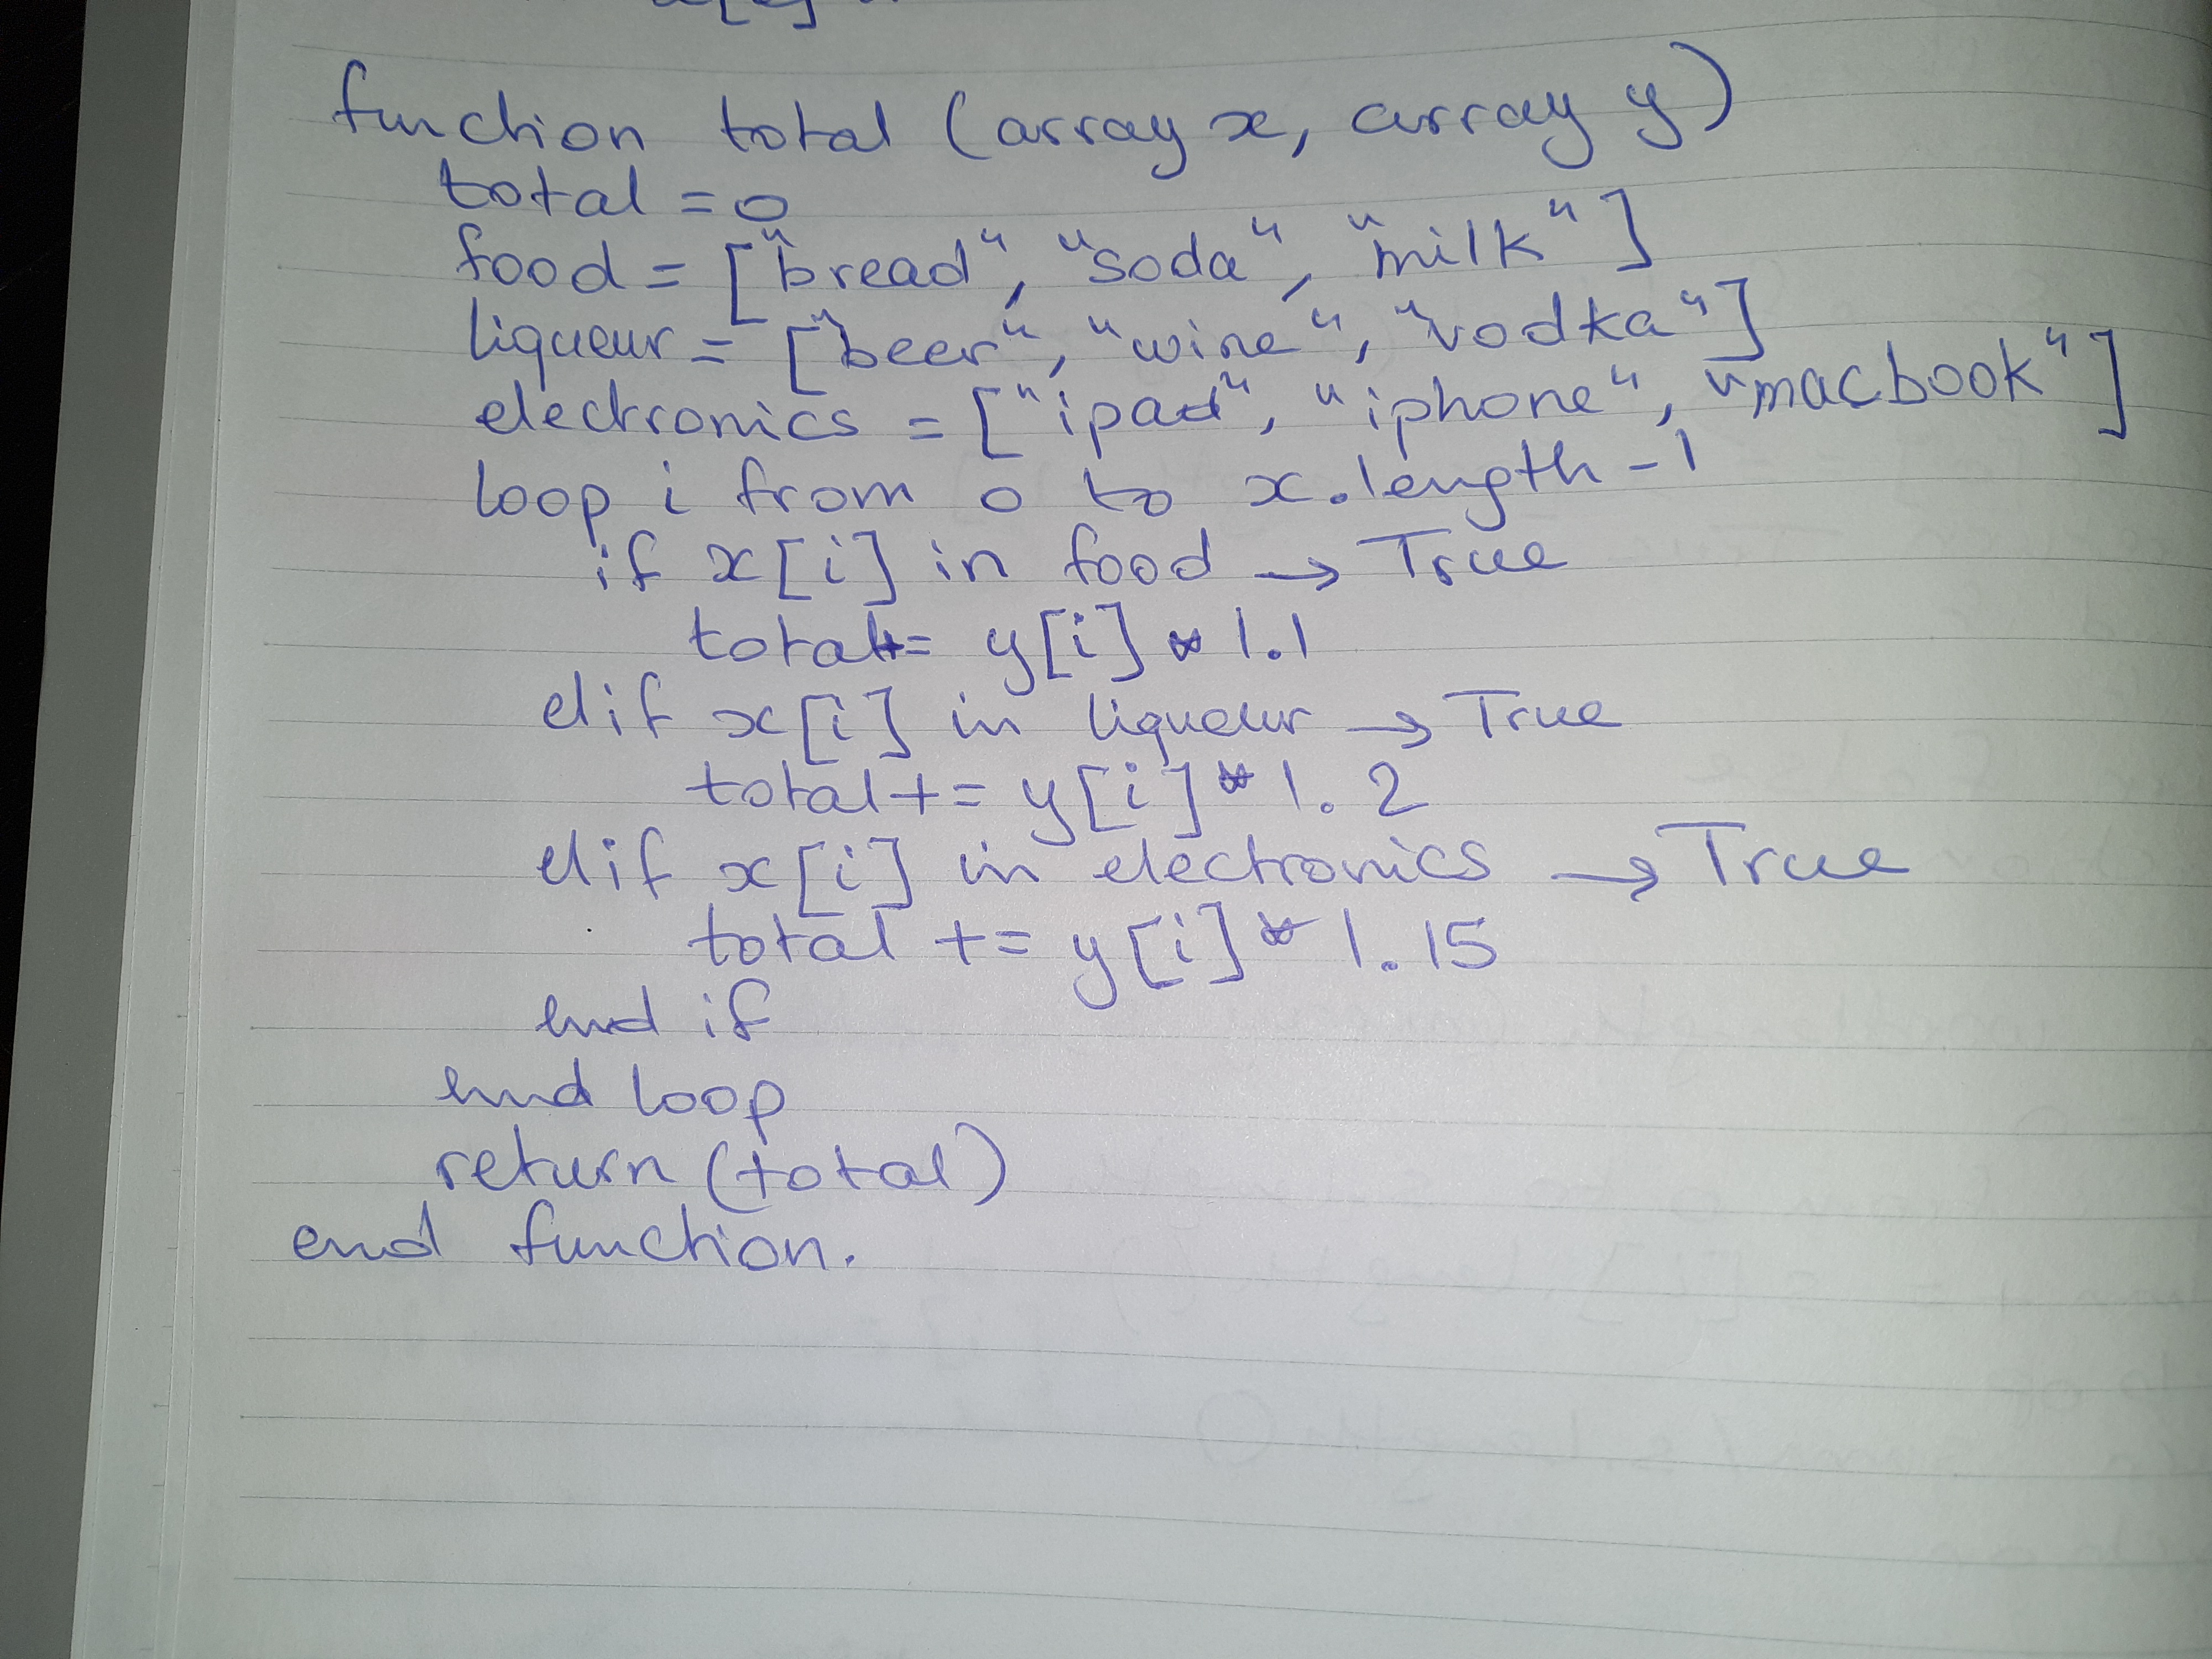 function total (array x, array y)
total = 0
food = ["bread", "soda", "milk"]
liqueur = ["beer", "wine", "vodka"]
electronics = ["ipad", "iphone", "macbook"]
loop i from 0 to x.length-1
if x[i] in food → True
total += y[i] * 1.1
elif x[i] in liqueur → True
total += y[i] * 1.2
elif x[i] in electronics → True
total += y[i] * 1.15
end if
end loop
return (total)
end function.